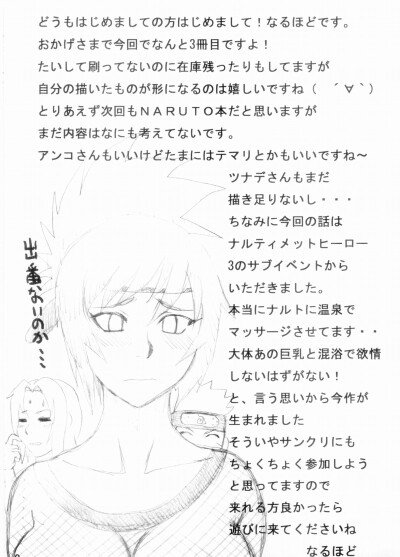 どうもはじめましての方はじめまして！なるほどです。
おかげさまで今回でなんと3冊目ですよ！
たいして刷ってないのに在庫残ったりもしてますが
自分の描いたものが形になるのは嬉しいですね（　´∀｀）
とりあえず次回もＮＡＲＵＴＯ本だと思いますが
まだ内容はなにも考えてないです。
アンコさんもいいけどたまにはテマリとかもいいですね～
ツナデさんもまだ
描き足りないし・・・
ちなみに今回の話は
ナルティメットヒーロー
3のサブイベントから
いただきました。
本当にナルトに温泉で
マッサージさせてます・・
大体あの巨乳と混浴で欲情
しないはずがない！
と、言う思いから今作が
生まれました
そういやサンクリにも
ちょくちょく参加しよう
と思ってますので
来れる方良かったら
遊びに来てくださいね
なるほど
出番ないのか…